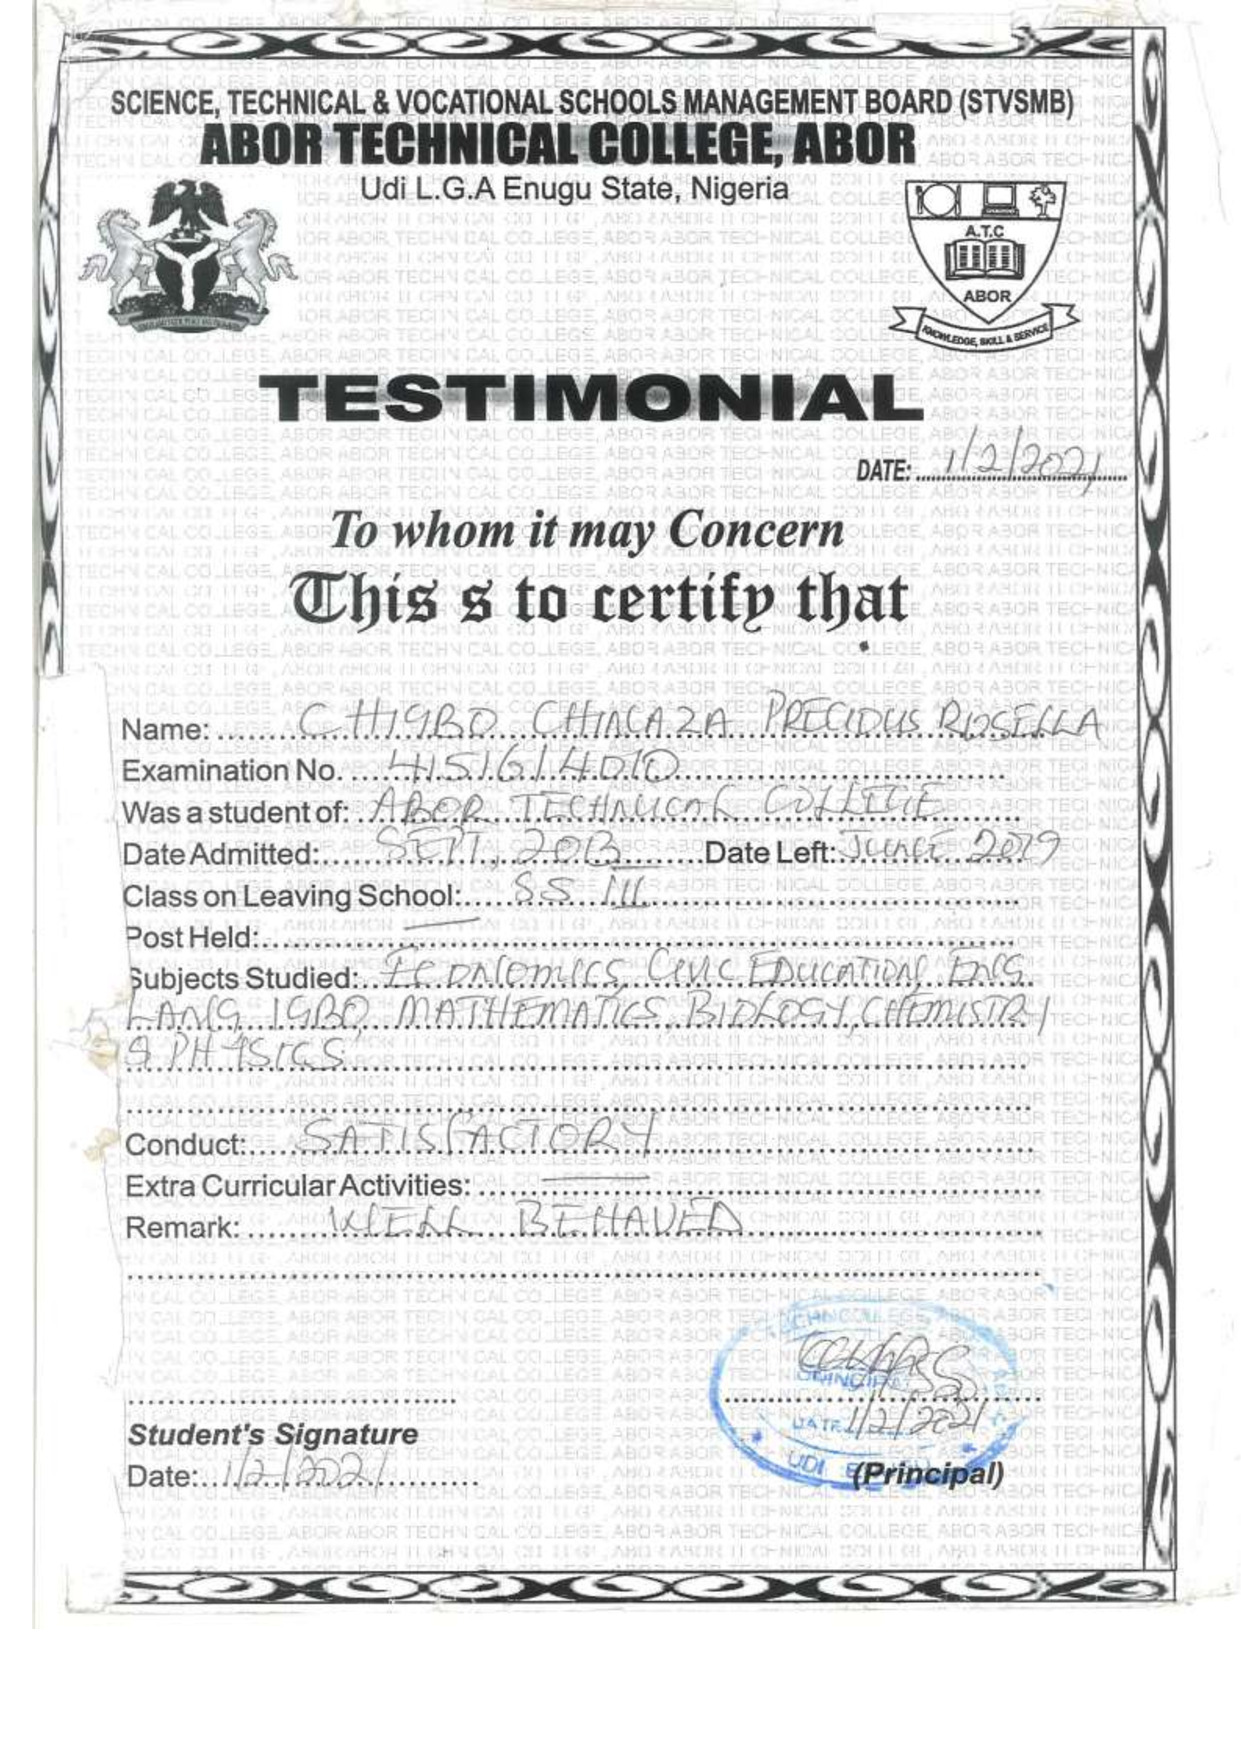 SCIENCE, TECHNICAL & VOCATIONAL SCHOOLS MANAGEMENT BOARD (STVSMB)
ABOR TECHNICAL COLLEGE, ABOR
Udi L.G.A Enugu State, Nigeria
A.T.C
ABOR
KNOWLEDGE, SKILL & SERVICE
TESTIMONIAL
DATE: 1/2/2021
To whom it may Concern
This s to certify that
Name: CHIGBO CHINAZA PRECIOUS ROSELLA
Examination No. 4151614010
Was a student of: ABOR TECHNICAL COLLEGE
Date Admitted: SEPT, 2013 Date Left: June 2019
Class on Leaving School: SS III
Post Held:
Subjects Studied: ECONOMICS, CIVIC EDUCATION, ENG
LANG, IGBO, MATHEMATICS, BIOLOGY, CHEMISTRY
& PHYSICS
Conduct: SATISFACTORY
Extra Curricular Activities:
Remark: WELL BEHAVED
PRINCIPAL
DATE 1/2/2021
UDI
Student's Signature
Date: 1/2/2021
(Principal)